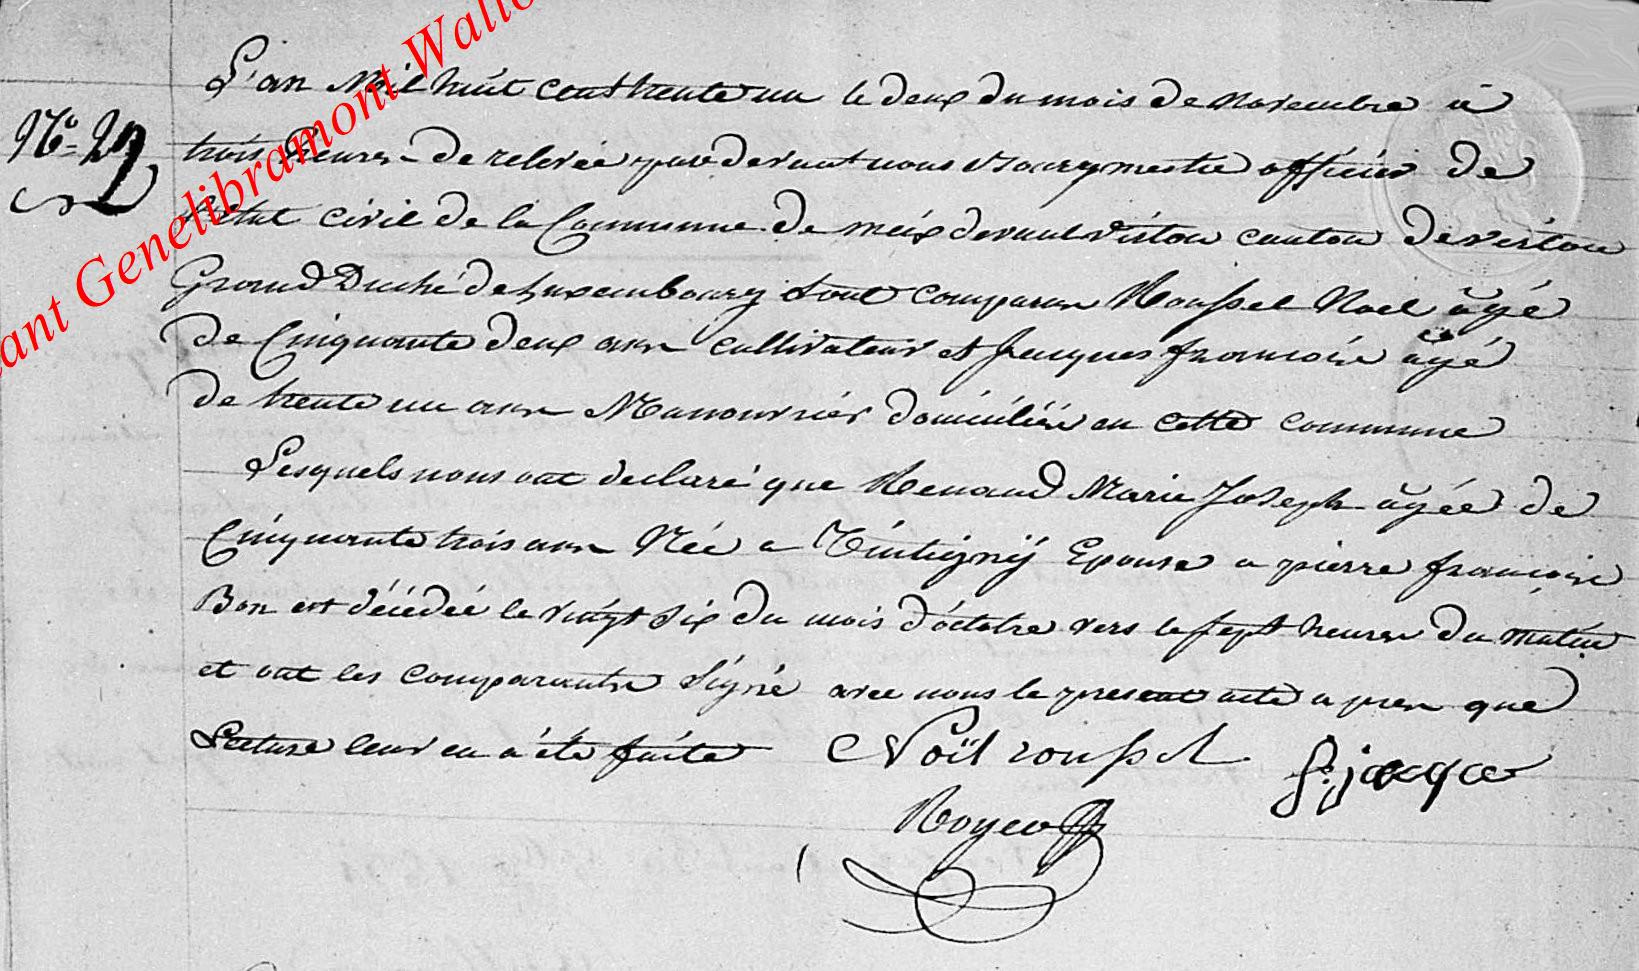 L'an Mil huit cent trente un le deux du mois de novembre à
N° 22
trois heures de relevée par devant nous Bourgmestre officier de
l'état civil de la Commune de meix devant virton canton de virton
Grand Duché de Luxembourg Sont comparus Roussel Noel âgé
de Cinquante deux ans cultivateur et Jacques francois âgé
de trente un ans Manouvrier domiciliés en cette commune
Lesquels nous ont declaré que Renaud Marie Joseph agée de
Cinquante trois ans Née a Tintigny Epouse a pierre francois
Bon est décédée le vingt Six du mois d'octobre vers le sept heures du matin
et ont les comparants Signé avec nous le present acte apres que
Lecture leur en a été faite Noël roussel f: jacque
ant Genelibramont Wallo